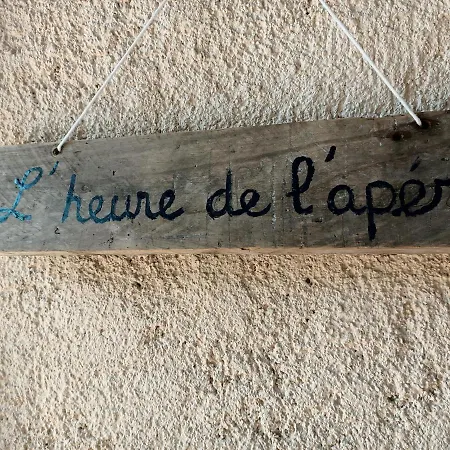 L'heure de l'apér